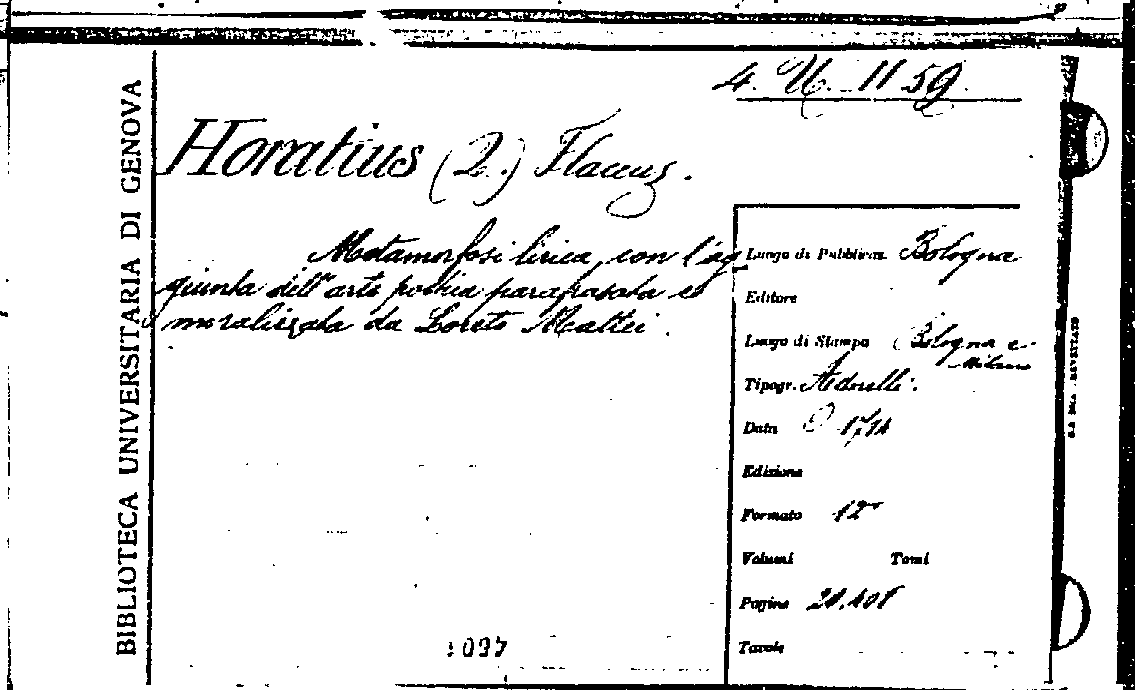 4. U. 11 59.
Horatius (Q.) Flaccus.
Metamorfosi lirica, con l'ag
giunta dell'arte poetica parafrasata e
moralizzata da Loreto Mattei.
BIBLIOTECA UNIVERSITARIA DI GENOVA
Luogo di Pubblicaz. Bologna
Editore
Luogo di Stampa Bologna e
Milano
Tipogr.
Data
Edizione
Formato 12°
Volumi Tomi
Pagine
Tavole